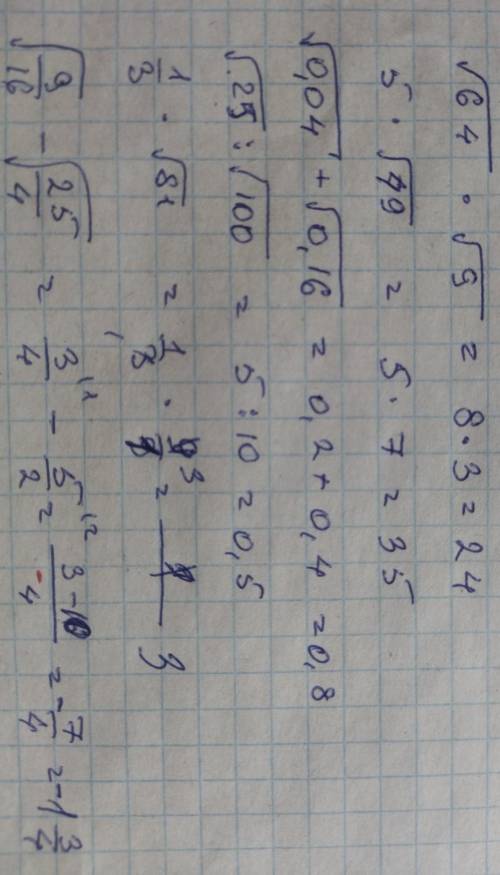 √64 · √9 = 8·3 = 24
5 · √49 = 5·7 = 35
√0,04 + √0,16 = 0,2 + 0,4 = 0,8
√25 : √100 = 5 : 10 = 0,5
1/3 · √81 = 1/3 · 9/1 = 3
√9/16 − √25/4 = 3/4 − 5/2 = 3-10/4 = -7/4 = -1 3/4